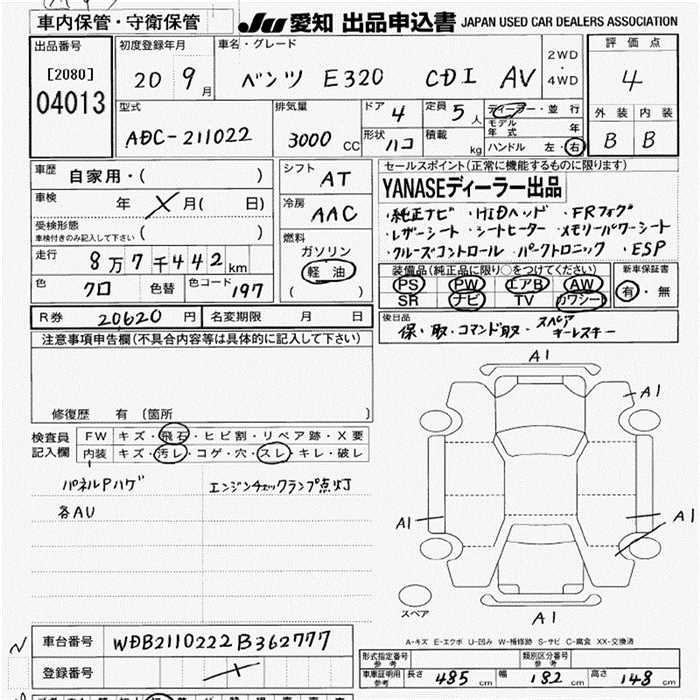 車内保管・守衛保管
JU 愛知 出品申込書 JAPAN USED CAR DEALERS ASSOCIATION
出品番号 初度登録年月 車名・グレード 2WD・4WD 評価点
[2080]
04013
20 9月 ベンツ E320 CDI AV 4
型式 排気量 ドア 4 定員 5人 ディーラー・並行 外装 内装
モデル年式 年
ADC-211022 3000 CC 形状 ハコ 積載 kg ハンドル 左・右 B B
車歴 自家用・( ) シフト AT セールスポイント(正常に機能するものに限ります)
YANASEディーラー出品
車検 年 X 月( 日) 冷房 AAC
・純正ナビ ・HIDヘッド ・FRフォグ
受検形態 車検付きのみ記入して下さい ( )
・レザーシート ・シートヒーター ・メモリーパワーシート
燃料 ガソリン 軽油 ( )
・クルーズコントロール ・パークトロニック ・ESP
走行 8万7千442km
装備品(純正品に限り○をつけてください) 新車保証書
色 クロ 色替 色コード 197
PS PW エアB AW 有・無
SR ナビ TV カワシート
R券 20,620円 名変期限 月 日
後日品 保・取・コマンド取・スペアキーレスキー
注意事項申告欄(不具合内容等は具体的に記入して下さい)
修復歴 有 (箇所 )
検査員記入欄 FW キズ・飛石・ヒビ割・リペア跡・X要
内装 キズ・汚レ・コゲ・穴・スレ・キレ・破レ
パネルPハゲ エンジンチェックランプ点灯
各AU
A1
A1
A1
A1
A1
スペア
A-キズ E-エクボ U-凹み W-補修跡 S-サビ C-腐食 XX-交換済
車台番号 WDB2110222B362777
登録番号
形式指定番号 参考 類別区分番号 参考
車庫証明用 参考 長さ 485cm 幅 182cm 高さ 148cm